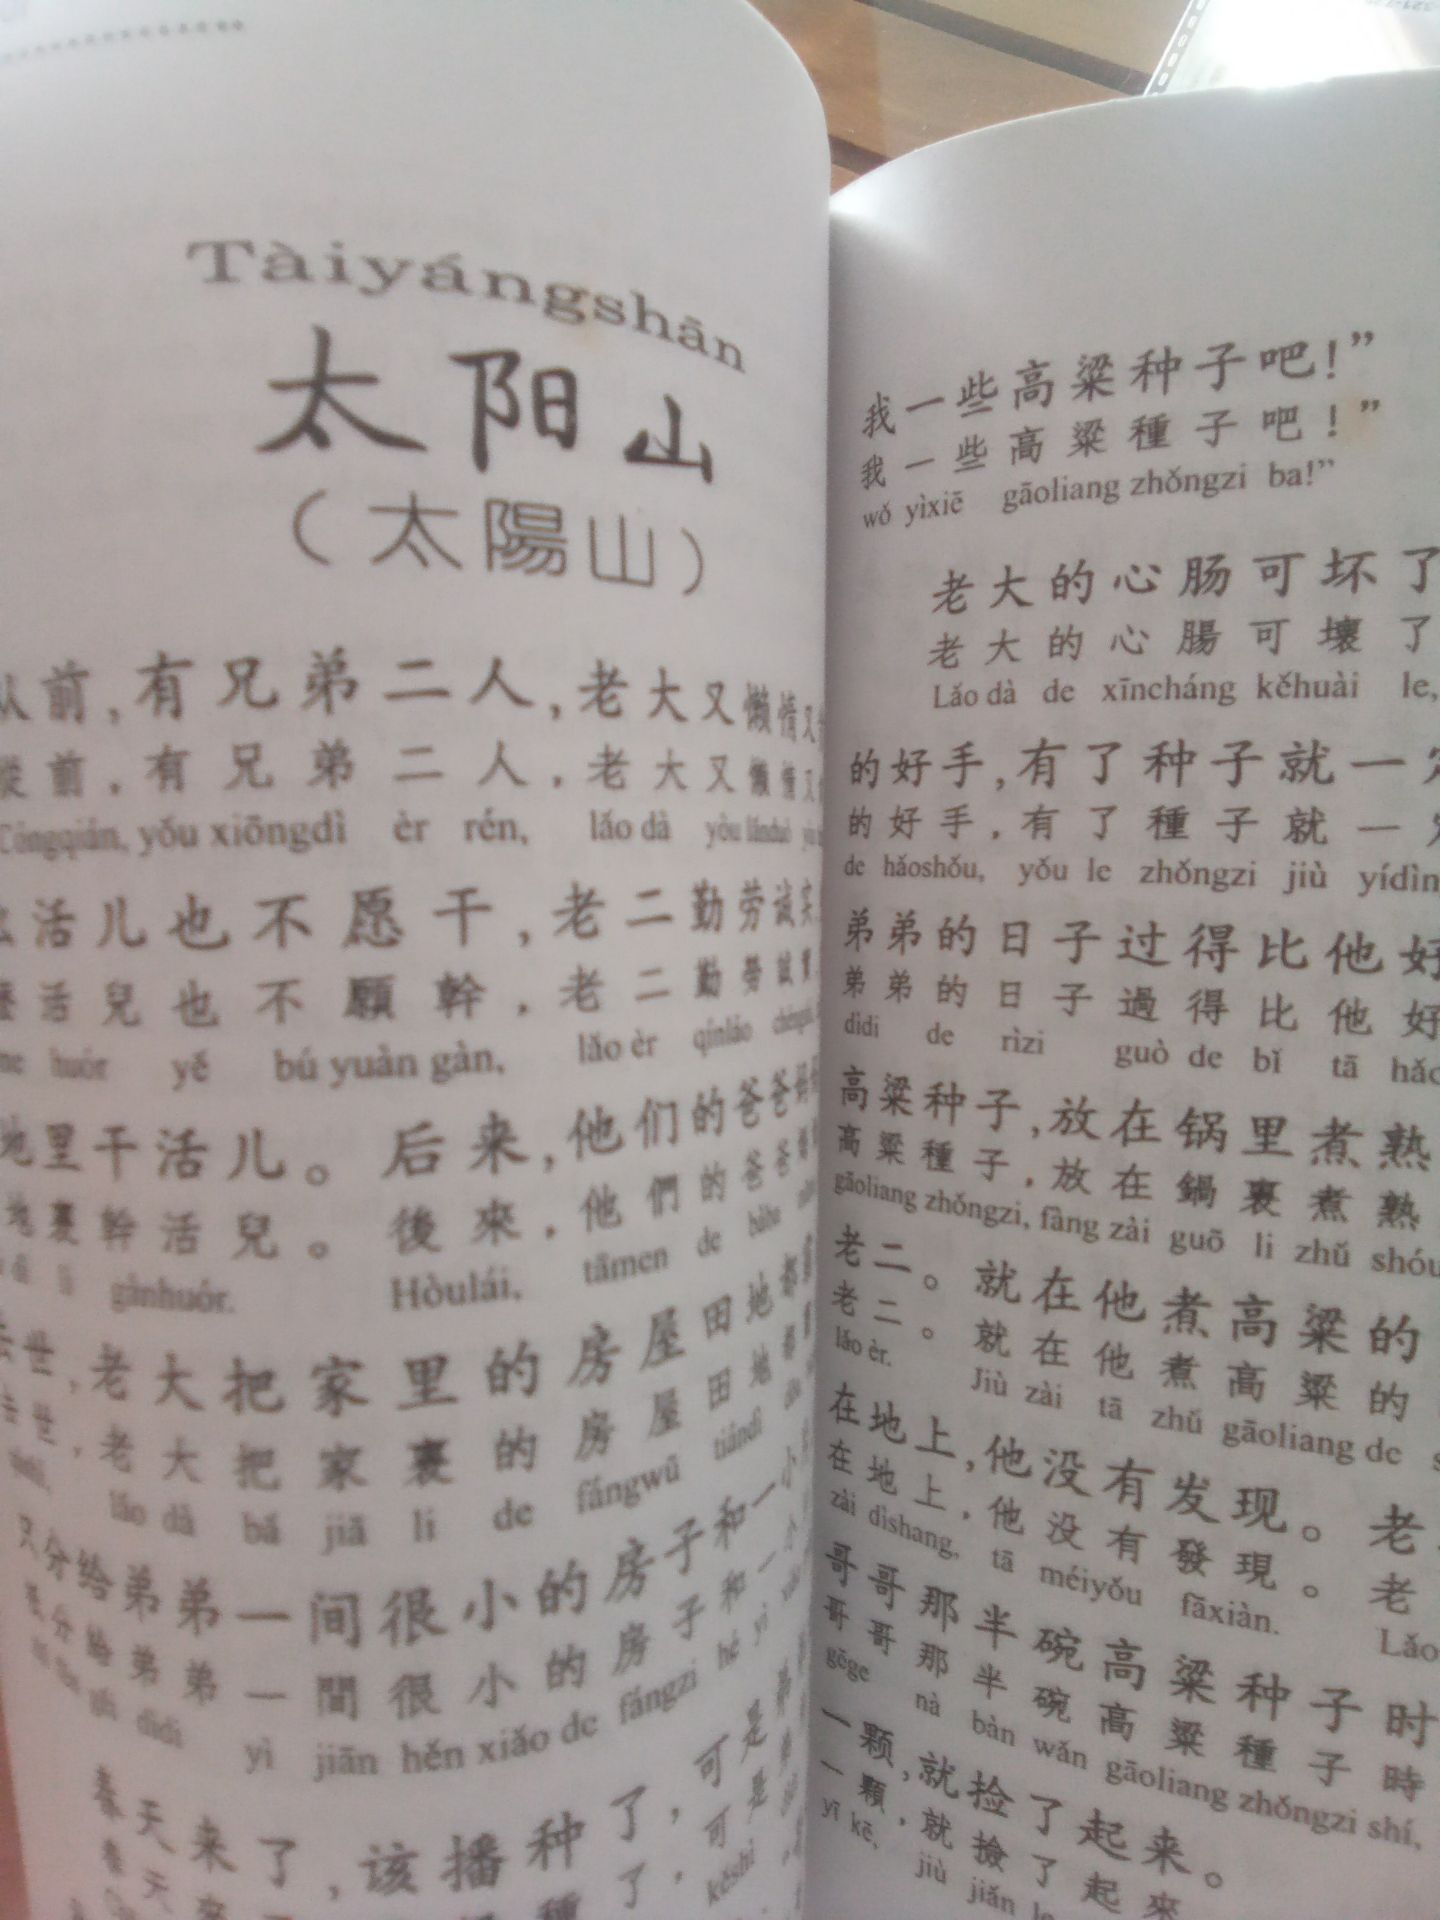 Tàiyángshān
太阳山
（太陽山）
从前，有兄弟二人，老大又懒惰又
從前，有兄弟二人，老大又懶惰又
Cóngqián, yǒu xiōngdì èr rén, lǎo dà yòu lǎnduò
活儿也不愿干，老二勤劳诚实
活兒也不願幹，老二勤勞誠實
me huór yě bú yuàn gàn, lǎo èr qínláo
地里干活儿。后来，他们的爸爸妈
地裏幹活兒。後來，他們的爸爸媽
gànhuór. Hòulái, tāmen de bàba
去世，老大把家里的房屋田地都
去世，老大把家裏的房屋田地都
lǎo dà bǎ jiā li de fángwū tiándì
只分给弟弟一间很小的房子和一小
分給弟弟一間很小的房子和一小
dìdi yì jiān hěn xiǎo de fángzi hé yì
春天来了，该播种了，可是弟
春天來 種了，可是
kěshì
我一些高粱种子吧！”
我一些高粱種子吧！”
wǒ yìxiē gāoliang zhǒngzi ba!”
老大的心肠可坏了
老大的心腸可壞了
Lǎo dà de xīncháng kěhuài le,
的好手，有了种子就一定
的好手，有了種子就一定
de hǎoshǒu, yǒu le zhǒngzi jiù yídìn
弟弟的日子过得比他好
弟弟的日子過得比他好
dìdi de rìzi guò de bǐ tā hǎo
高粱种子，放在锅里煮熟
高粱種子，放在鍋裏煮熟
gāoliang zhǒngzi, fàng zài guō li zhǔ shóu
老二。就在他煮高粱的
老二。就在他煮高粱的
lǎo èr. Jiù zài tā zhǔ gāoliang de
在地上，他没有发现。老
在地上，他没有發現。老
zài dìshang, tā méiyǒu fāxiàn. Lǎo
哥哥那半碗高粱种子时
哥哥那半碗高粱種子時
gēge nà bàn wǎn gāoliang zhǒngzi shí,
一颗，就捡了起来。
一顆，就撿了起來
yī kē, jiù jiǎn le